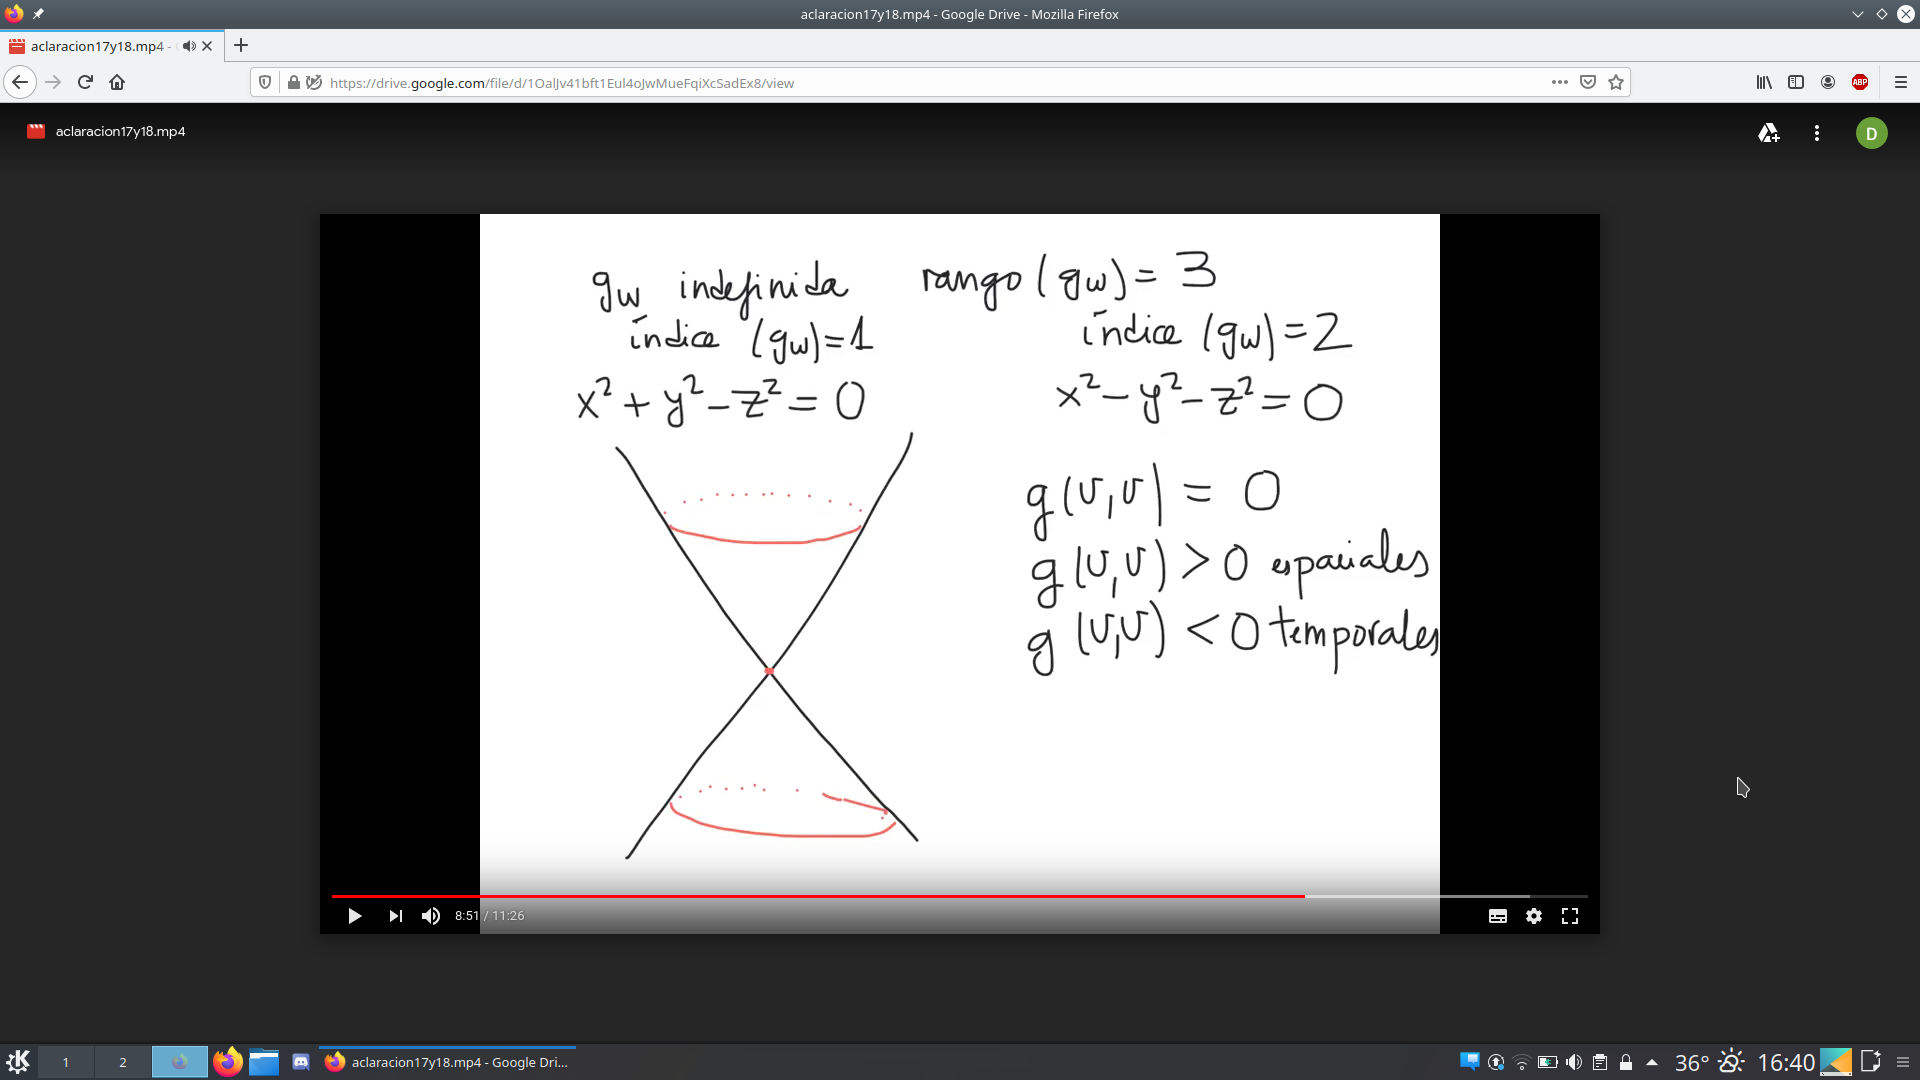 aclaracion17y18.mp4 - Google Drive - Mozilla Firefox
aclaracion17y18.mp4 -
https://drive.google.com/file/d/1OalJv41bft1Eul4oJwMueFqiXcSadEx8/view
ABP
aclaracion17y18.mp4
D
gw indefinida rango (gw) = 3
índice (gw)=1 índice (gw)=2
x² + y² - z² = 0 x² - y² - z² = 0
g(v,v) = 0
g(v,v) > 0 espaciales
g(v,v) < 0 temporales
8:51 / 11:26
1 2 aclaracion17y18.mp4 - Google Dri... 36° 16:40